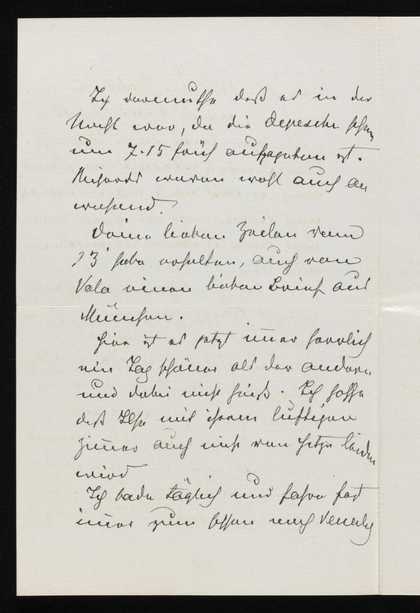 Ich vermuthe daß es in der
Nacht war, da die Depesche schon
um 7.15 früh aufgegeben ist.
Richards waren wohl auch an
wesend?
Deine lieben Zeilen vom
23 habe erhalten, auch von
Vala einen lieben Brief aus
München.
Hier ist es jetzt immer herrlich
ein Tag schöner als der andere
und dabei nicht heiß. Ich hoffe
daß Ilse mit ihrem luftigen
Zimmer auch nicht von Hitze leiden
wird
Ich bade täglich und fahre fast
immer zum Essen nach Venedig